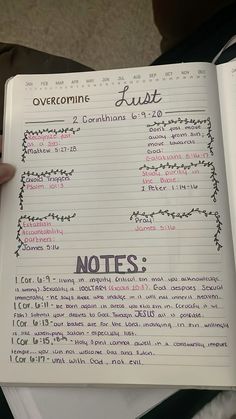 JAN FEB MAR APR MAY JUN JUL AUG SEP OCT NOV DEC
OVERCOMING Lust
2 Corinthians 6:9-20
Recognize lust
as a sin:
Matthew 5:27-28
Don't just move
away from sin;
move towards
God:
Galatians 5:16-17
Avoid triggers
Psalm 101:3
Study purity in
the Bible:
1 Peter 1:14-16
Establish
Accountability
partners:
James 5:16
Pray!
James 5:16
NOTES:
1 Cor. 6:9 - living in iniquity until sin that you acknowledge
is wrong? Sexuality is IDOLTARY God despises Sexual
immorality - he says those who indulge in it will not inherit heaven.
1 Cor. 6:11 - be born again in areas we are sin in. Crucify it
Flesh submit your desires to God. Through JESUS all is possible.
1 Cor. 6:13 - our bodies are for the Lord, indulging in sin willingly
is not worthy - especially lust.
1 Cor. 6:15, - Holy Spirit cannot dwell in a community impure
temple... you can not welcome God and Satan.
1 Cor. 6:17 - unite with God, not evil.